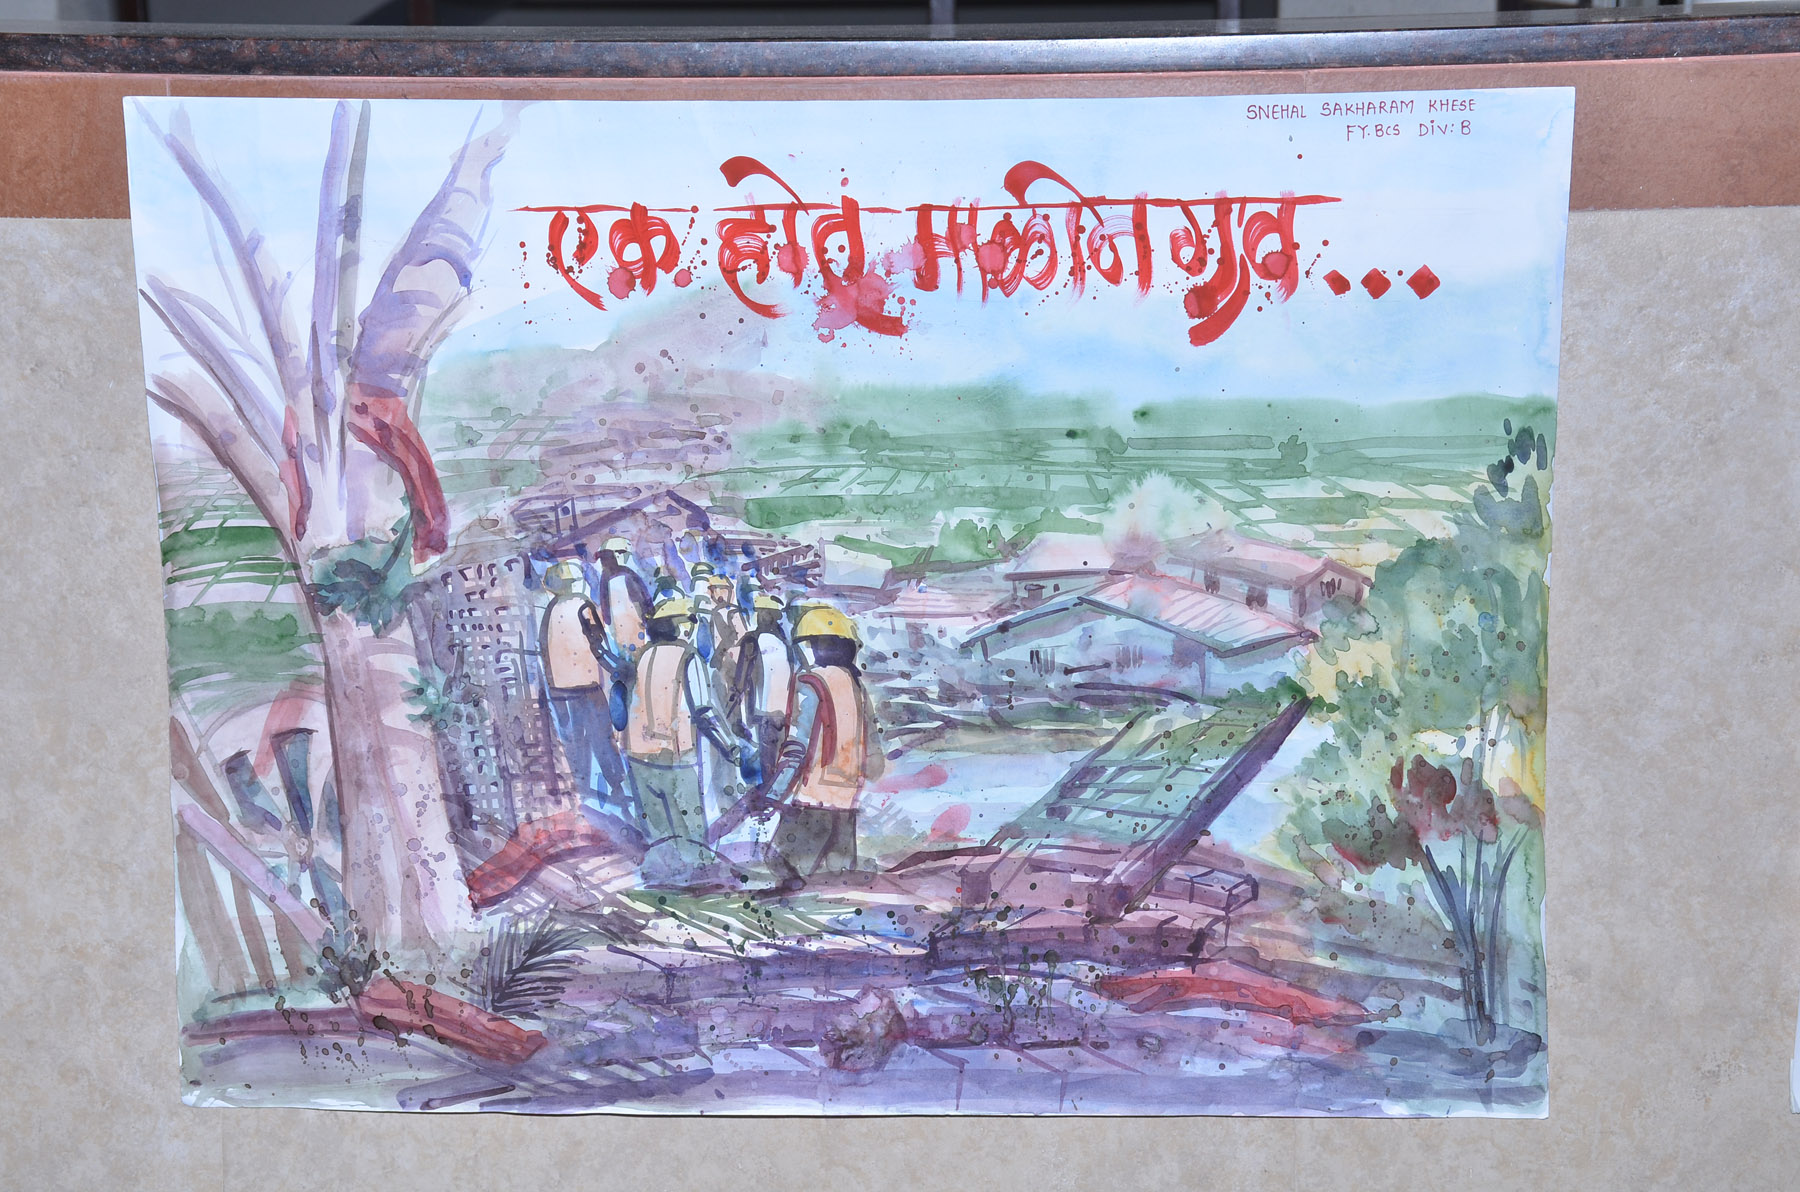 SNEHAL SAKHARAM KHESE
FY.BCS DIV: B
एक होतं माळीण गाव...